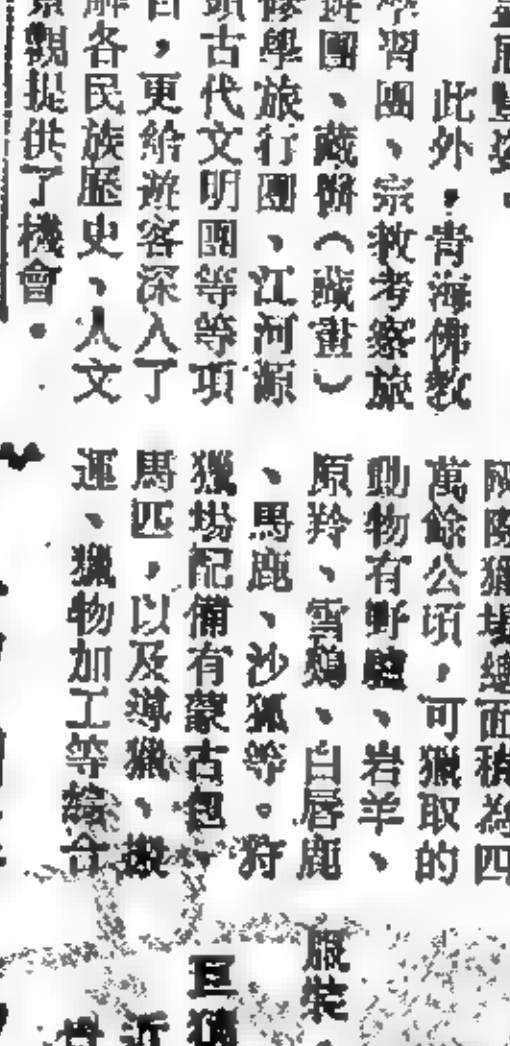 此外，青海佛教
學習團、宗教考察旅
團、藏醫（藏畫）
修學旅行團、江河源
頭古代文明團等等項
目，更給遊客深入了
解各民族歷史、人文
景觀提供了機會。
國際獵場總面積為四
萬餘公頃，可獵取的
動物有野驢、岩羊、
原羚、雪鷄、白唇鹿
、馬鹿、沙狐等。狩
獵場配備有蒙古包、
馬匹，以及導獵、搬
運、獵物加工等綜合
服裝